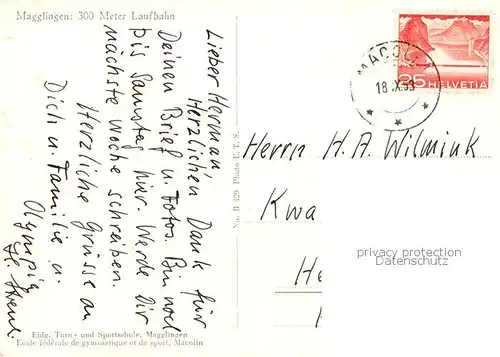 Magglingen: 300 Meter Laufbahn
Lieber Herman,
Herzlichen Dank für
Deinen Brief u. Fotos. Bin noch
bis Samstag hier. Werde Dir
nächste Woche schreiben.
Herzliche Grüsse an
Dich u. Familie u.
Olympia
No. B 429 Photo E. T. S.
25 HELVETIA
MACOLIN
18.X.53
Herrn H. A. Wilmink
Kwa
He
privacy protection
Datenschutz
Eidg. Turn- und Sportschule, Magglingen
Ecole fédérale de gymnastique et de sport, Macolin